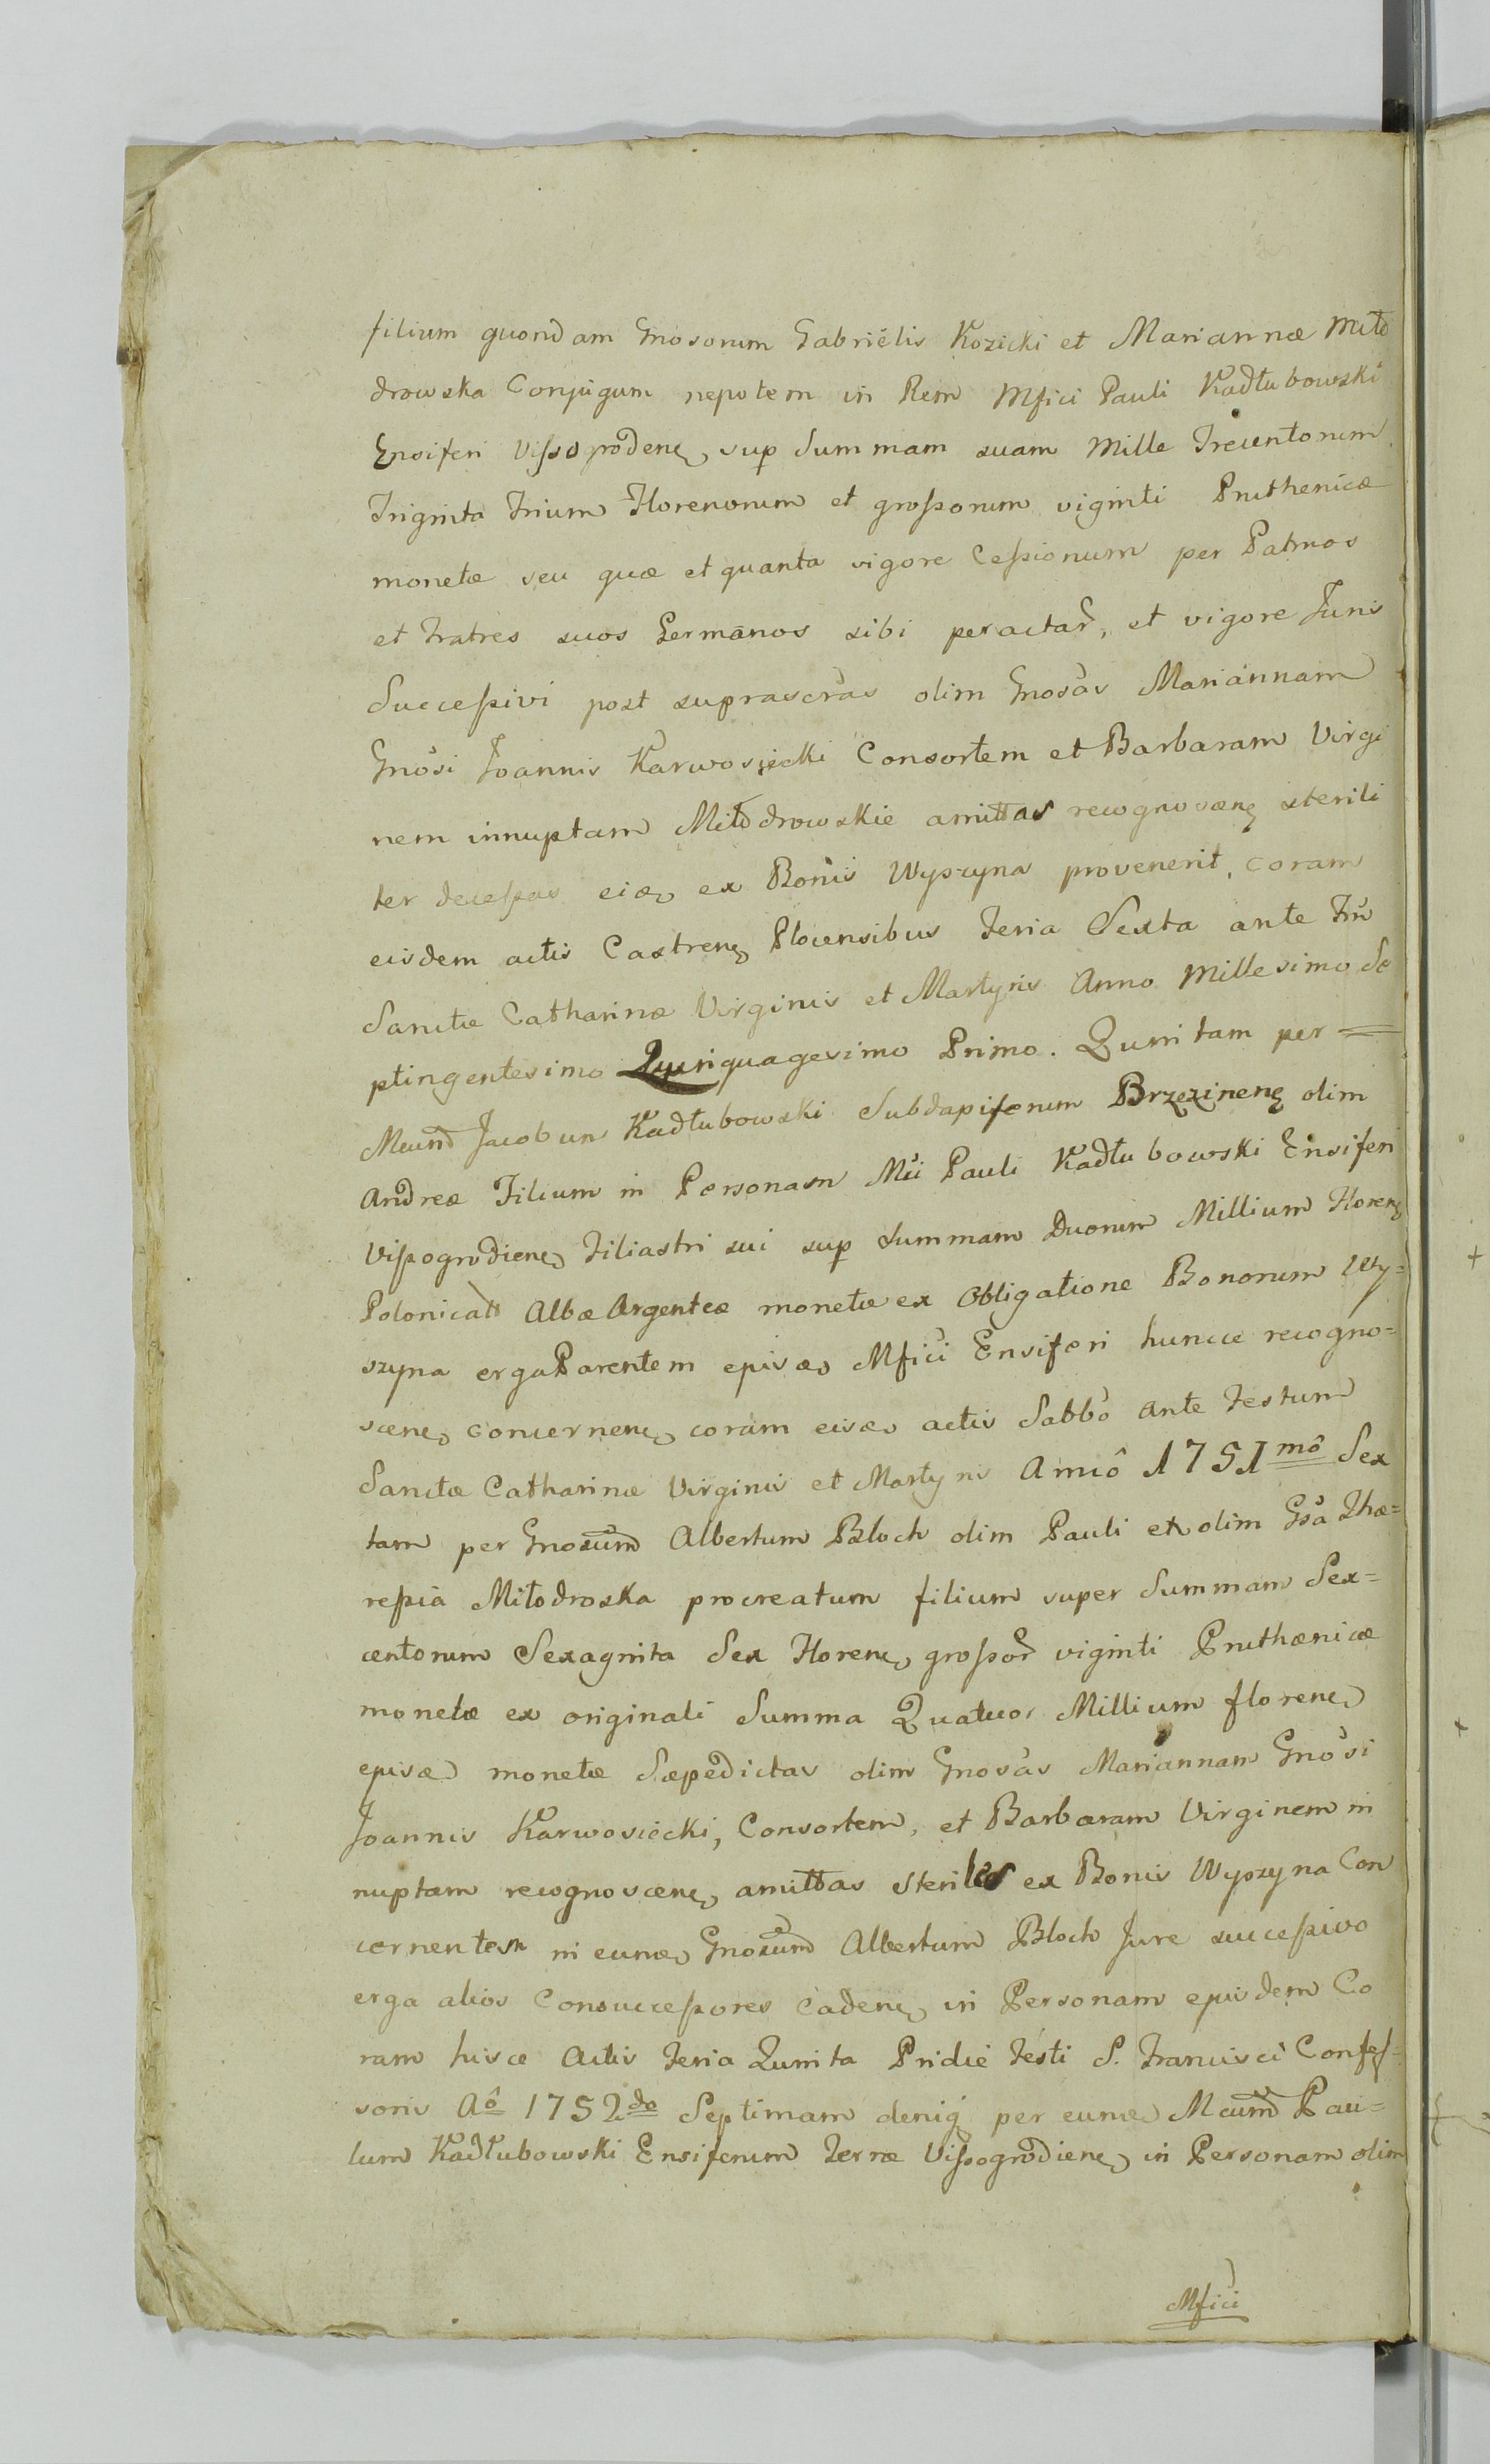 filium quondam Gnosorum Gabriélis Kozicki et Mariannæ Miło
drowska Conjugum nepotem in Rem Mfici Pauli Kadłubowski
Ensiferi Vissogrodenꝫ sup Summam suam Mille Trecentorum
Triginta Trium Florenorum et grossorum viginti Pruthenicæ
monetæ seu quæ et quanta vigore Cessionum per Patruos
et Fratres suos Germanos sibi peractar, et vigore Juris
Successivi post suprascras olim Gnosas Mariannam
Gnosi Joannis Karwosiecki Consortem et Barbaram Virgi
nem innuptam Miłodrowskie amittas recognoscenꝫ sterili
ter decessas ex Bonis Wyszyna provenerit, coram
eisdem actis Castrenꝫ Plocensibus Feria Sexta ante Ftü
Sanctæ Catharinæ Virginis et Martyris Anno Millesimo Se
ptingentesimo Quinquagesimo Primo. Quintam per =
Mcund Jacobum Kadłubowski Subdapiferum Brzezinenꝫ olim
Andreæ Filium in Personam Mci Pauli Kadłubowski Ensiferi
Vissogrodienꝫ Filiastri sui sup Summam Duorum Millium Florenꝫ
Polonicall Albæ Argenteæ monetæ ex Obligatione Bonorum Wy=
szyna erga Parentem ejusdꝫ Mfici Ensiferi huncce recogno=
scenꝫ concernenꝫ coram eisdꝫ actis Sabbo ante Festum
Sanctæ Catharinæ Virginis et Martyris Anno 1751mo Sex
tam per Gnosum Albertum Bloch olim Pauli ex olim Gsa The=
ressia Miłodroska procreatum filium super Summam Sex=
centorum Sexaginta Sex Florenꝫ grossor viginti Pruthænicæ
monetæ ex originali Summa Quatuor Millium florenꝫ
ejusdꝫ monetæ Sæpedictas olim Gnosas Mariannam Gnosi
Joannis Karwosiecki, Consortem, et Barbaram Virginem in
nuptam recognoscenꝫ amittas steriles ex Bonis Wyszyna Con
cernentem in eundꝫ Gnosum Albertum Bloch Jure successivo
erga alios Consuccessores Cadenꝫ in Personam ejusdem Co
ram hisce Actis Feria Quinta Pridie Festi S. Francisci Confes=
soris Ao 1752do Septimam deniq per eundꝫ Mcum Pau=
lum Kadłubowski Ensiferum Terræ Vissogrodienꝫ in Personam olim
Mfici